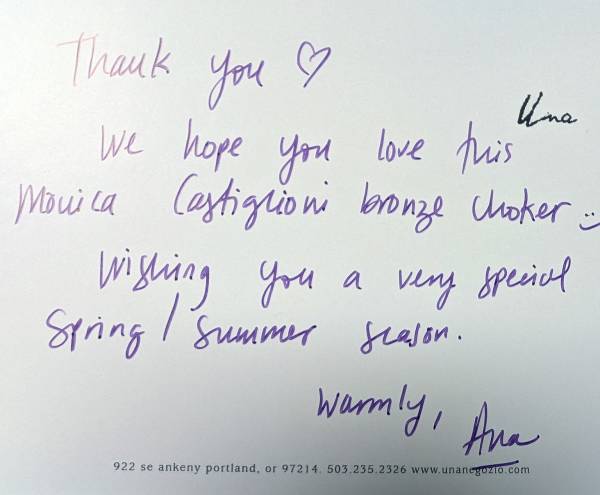 Thank you ♡
Una
We hope you love this
Monica Castiglioni bronze choker :)
Wishing you a very special
Spring/Summer season.
Warmly,
Ana
922 se ankeny portland, or 97214. 503.235.2326 www.unanegozio.com